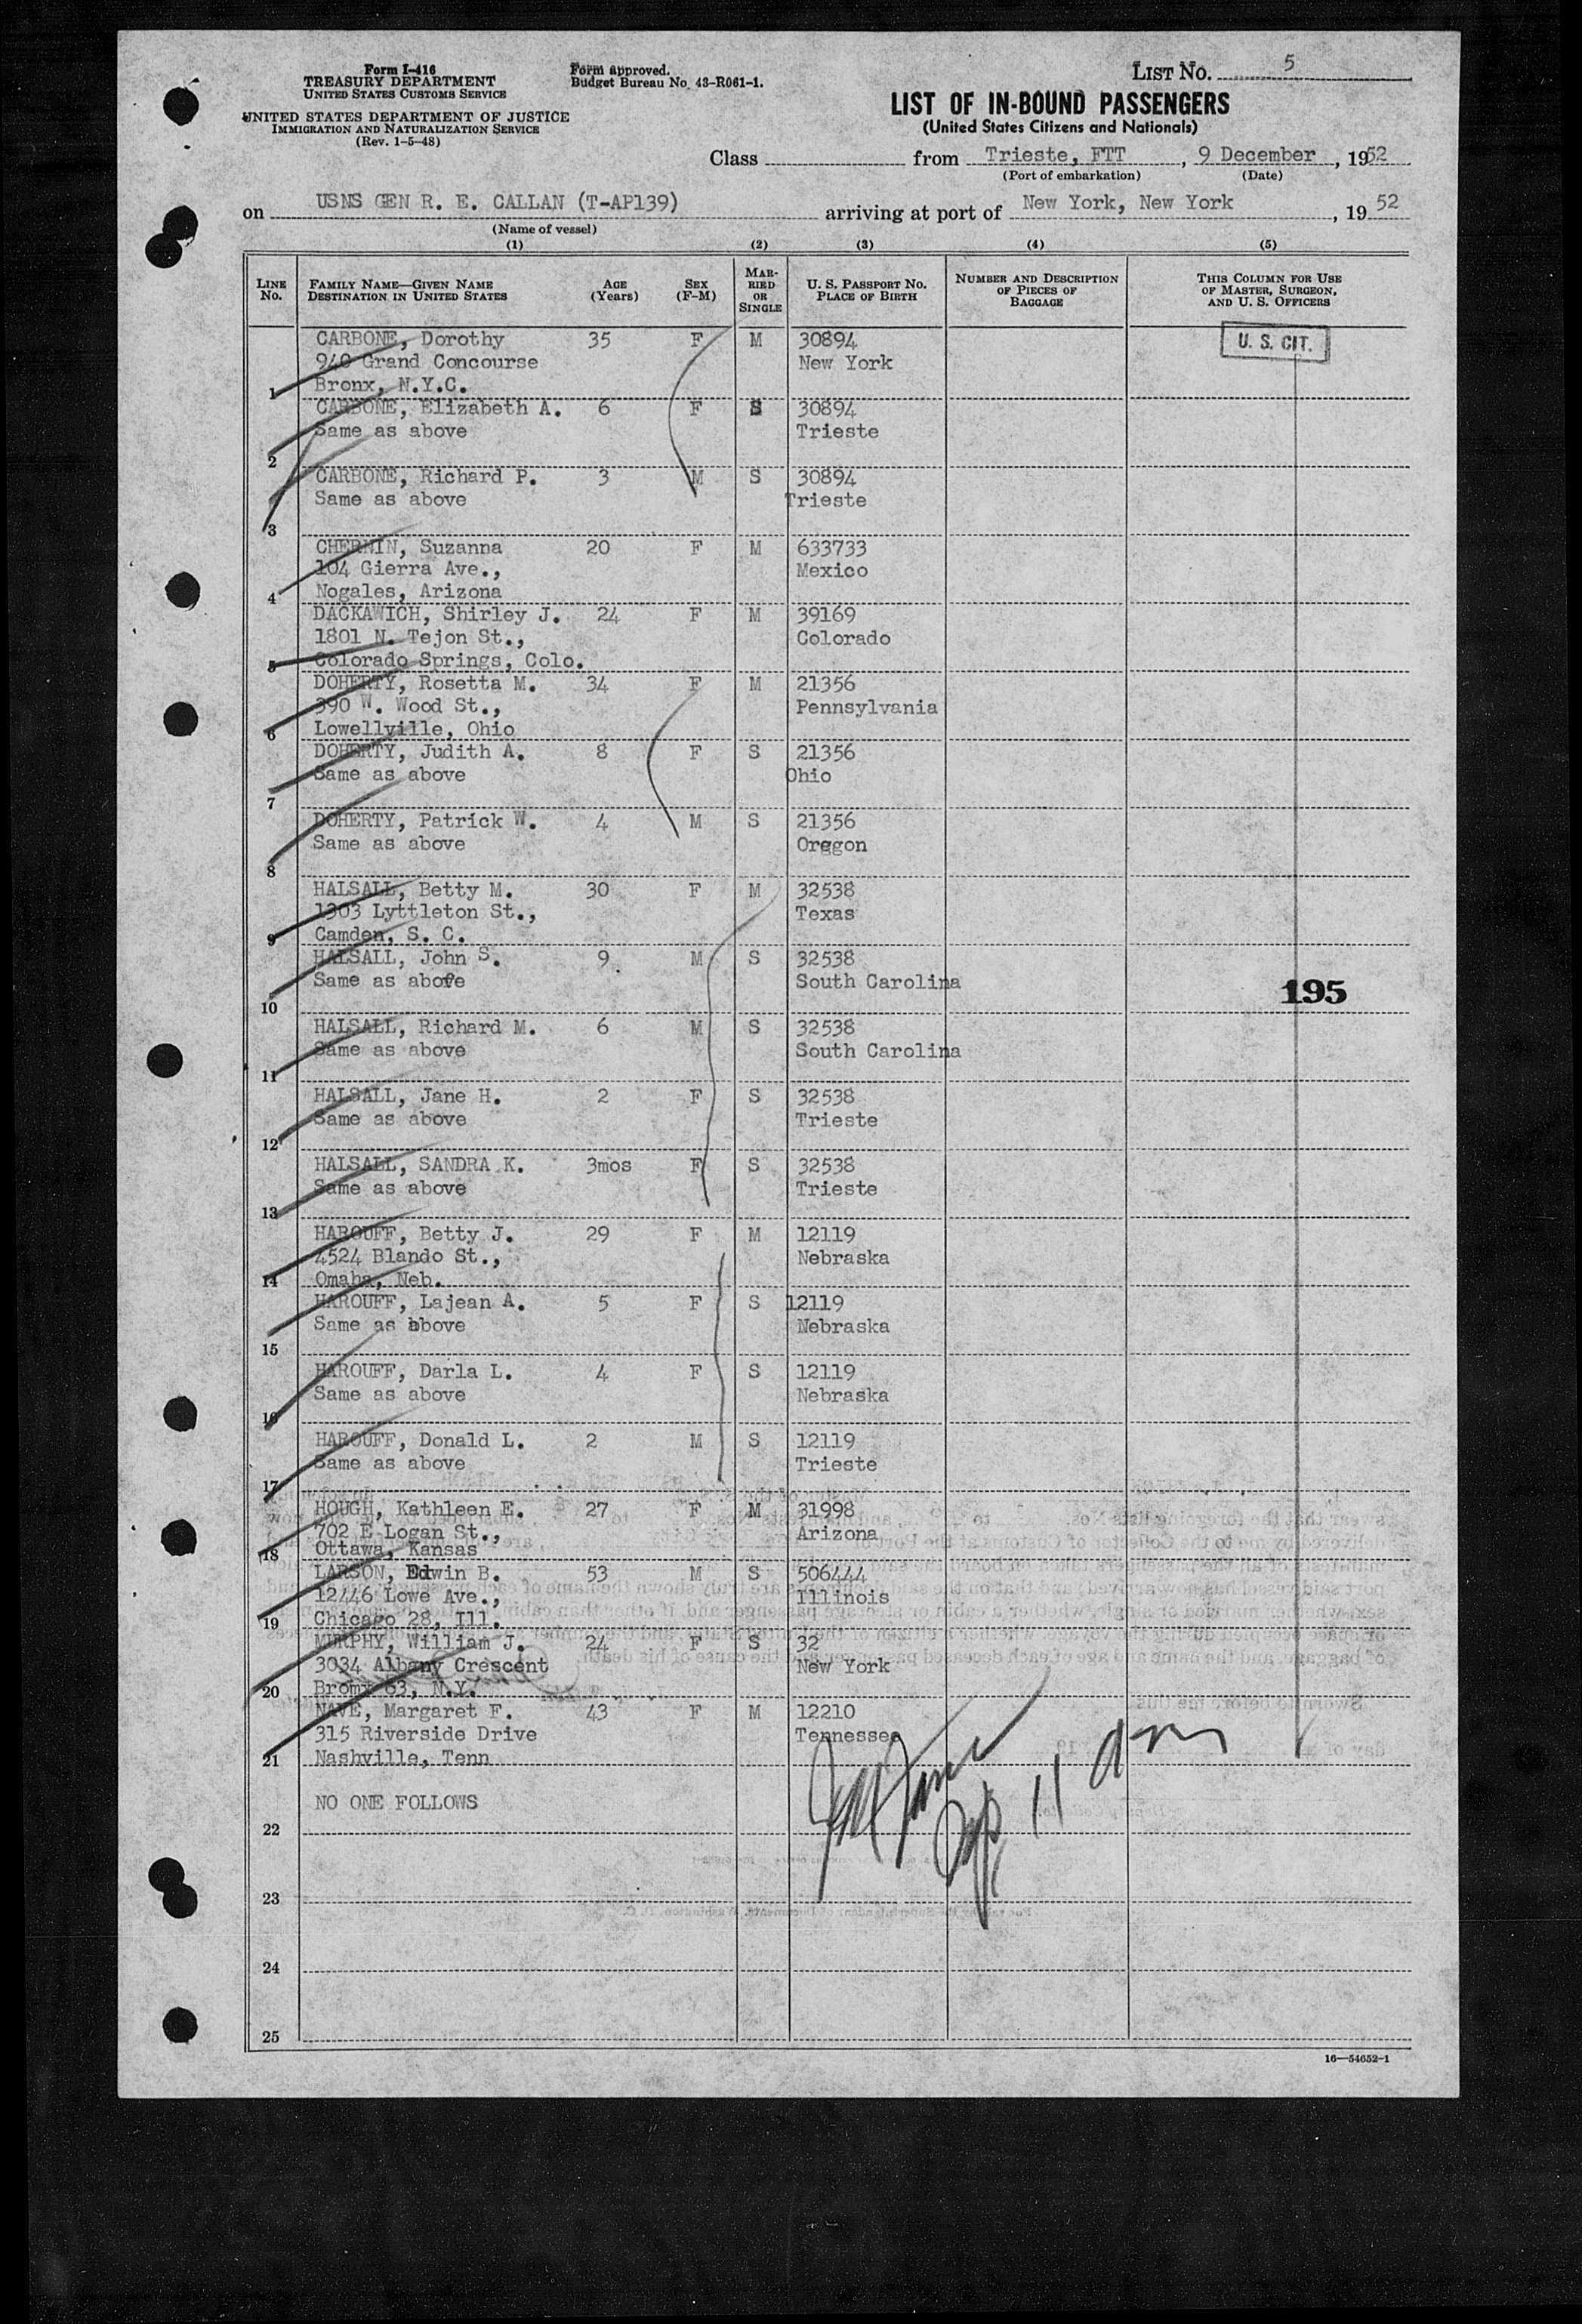 Form I-416
TREASURY DEPARTMENT
UNITED STATES CUSTOMS SERVICE
UNITED STATES DEPARTMENT OF JUSTICE
IMMIGRATION AND NATURALIZATION SERVICE
(Rev. 1-5-48)
Form approved.
Budget Bureau No. 43-R061-1.
LIST NO. 5
LIST OF IN-BOUND PASSENGERS
(United States Citizens and Nationals)
Class from Trieste, FTT, 9 December, 1952
(Port of embarkation) (Date)
on USNS GEN R. E. CALLAN (T-AP139) arriving at port of New York, New York, 19 52
(Name of vessel)
(1) (2) (3) (4) (5)
LINE NO. FAMILY NAME—GIVEN NAME DESTINATION IN UNITED STATES AGE (Years) SEX (F-M) MARRIED OR SINGLE U. S. PASSPORT NO. PLACE OF BIRTH NUMBER AND DESCRIPTION OF PIECES OF BAGGAGE THIS COLUMN FOR USE OF MASTER, SURGEON, AND U. S. OFFICERS
CARBONE, Dorothy 35 F M 30894 U. S. CIT.
940 Grand Concourse New York
1 Bronx, N.Y.C.
CARBONE, Elizabeth A. 6 F S 30894
Same as above Trieste
2
CARBONE, Richard P. 3 M S 30894
Same as above Trieste
3
CHERNIN, Suzanna 20 F M 633733
104 Gierra Ave., Mexico
4 Nogales, Arizona
DACKAWICH, Shirley J. 24 F M 39169
1801 N. Tejon St., Colorado
5 Colorado Springs, Colo.
DOHERTY, Rosetta M. 34 F M 21356
390 W. Wood St., Pennsylvania
6 Lowellville, Ohio
DOHERTY, Judith A. 8 F S 21356
Same as above Ohio
7
DOHERTY, Patrick W. 4 M S 21356
Same as above Oregon
8
HALSALL, Betty M. 30 F M 32538
1303 Lyttleton St., Texas
9 Camden, S. C.
HALSALL, John S. 9 M S 32538
Same as above South Carolina
10
195
HALSALL, Richard M. 6 M S 32538
Same as above South Carolina
11
HALSALL, Jane H. 2 F S 32538
Same as above Trieste
12
HALSALL, SANDRA K. 3mos F S 32538
Same as above Trieste
13
HAROUFF, Betty J. 29 F M 12119
4524 Blando St., Nebraska
14 Omaha, Neb.
HAROUFF, Lajean A. 5 F S 12119
Same as above Nebraska
15
HAROUFF, Darla L. 4 F S 12119
Same as above Nebraska
16
HAROUFF, Donald L. 2 M S 12119
Same as above Trieste
17
HOUGH, Kathleen E. 27 F M 31998
702 E Logan St., Arizona
18 Ottawa, Kansas
LARSON, Edwin B. 53 M S 506444
12446 Lowe Ave., Illinois
19 Chicago 28, Ill.
MURPHY, William J. 24 F S 32
3034 Albany Crescent New York
20 Bromx 63, N.Y.
NAVE, Margaret F. 43 F M 12210
315 Riverside Drive Tennessee
21 Nashville, Tenn
NO ONE FOLLOWS
22
23
24
25
16—54652-1